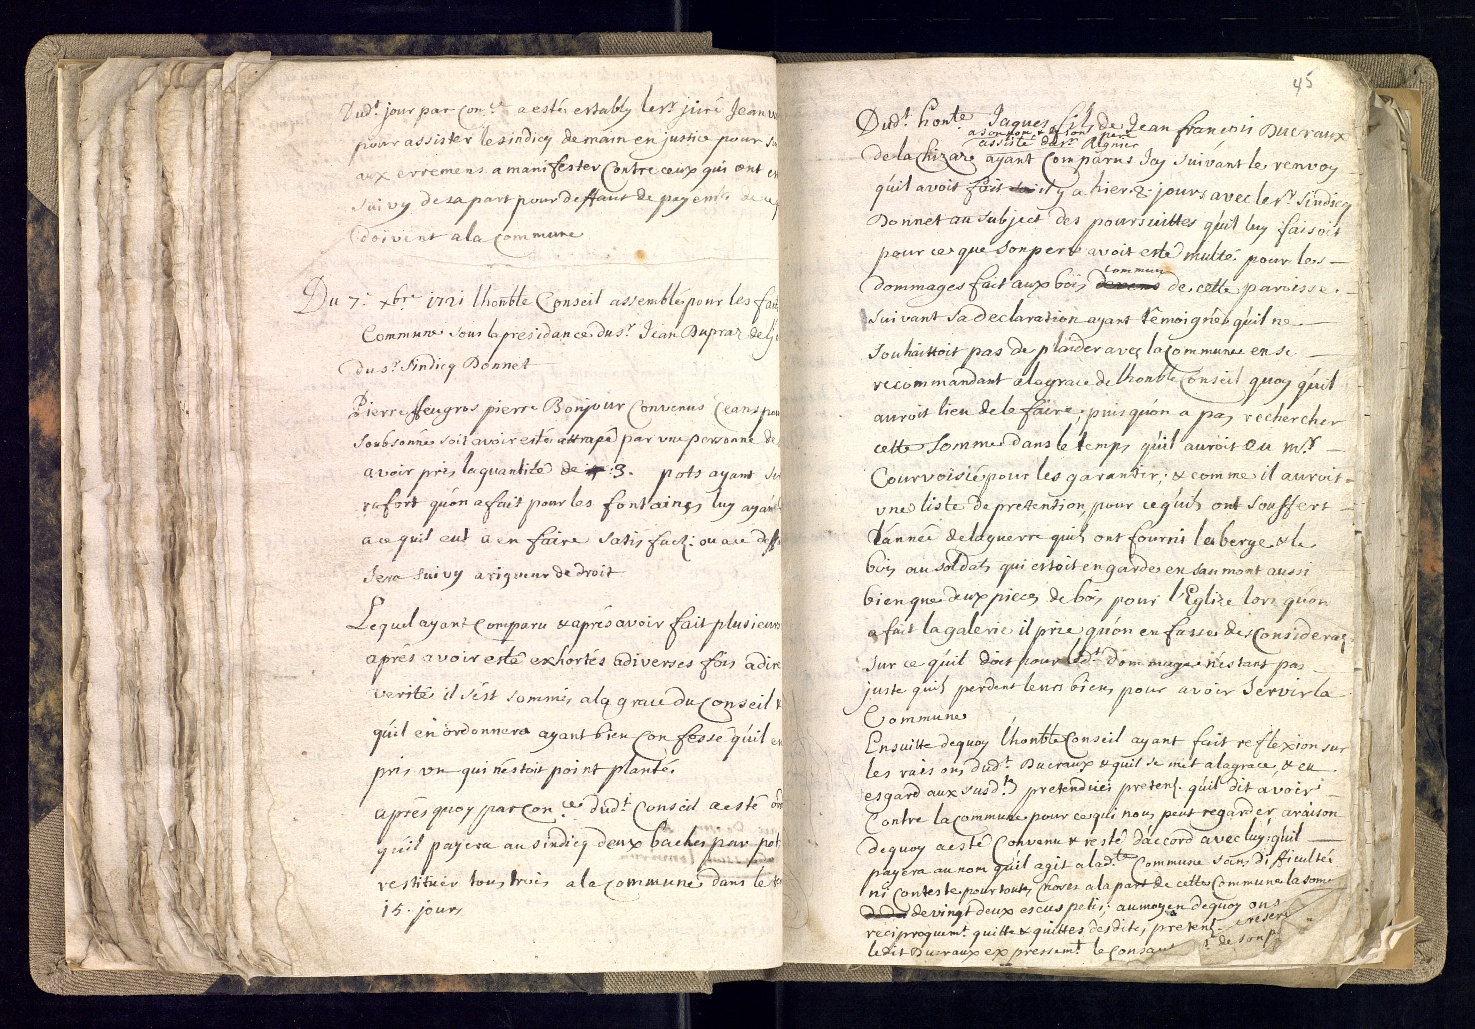 Dudt jour par con.ce a estés establÿ le sr juré Jean
pour assister le sindicq demain en justice pour
aux erremens a manifester Contre ceux qui ont
suivy de sa part pour deffaut de payemt de
doivent a la commune
Du 7.e xbre 1721 lhonble Conseil assemblé pour les fai
Commune sous la presidance du sr. Jean Dupraz de
du sr. Sindicq Donnet
Pierre ffeugros pierre Bonjour Convenus Ceans pou
soubsonné soit avoir esté attrapé par une personne de
avoir pris la quantité de 3. pots ayant
rafort qu'on a fait pour les fontaines luy ayant
a ce quil eut a en faire satisfact: ou a ce deff
sera suivy a rigueur de droit
Lequel ayant Comparu & aprés avoir fait plusieurs
aprés avoir esté exhortés a diverses fois a dire
verité il s'est sommis a la grace du Conseil &
qu'il en ordonnera ayant bien Confessé qu'il en
pris un qui n'estoit point planté.
aprés quoy par Con.ce dudt Conseil a esté or
qu'il payera au sindicq deux baches par pot
restituer tous trois a la commune dans le
15. jours
45
Dudt honte Jaques fils de Jean françois Ducraux
a son nom & de sons pere
assisté du sr. Algnier
de la Chizaz ayant Comparus Icy suivant le renvoy
qu'il avoit fait il y a hier 8 jours avec le sr. Sindicq
Donnet au subject des poursuittes qu'il luy faisoit
pour ce que son pere avoit esté multé pour les
commun
dommages fait aux bois de cette paroisse.
suivant sa declaration ayant têmoignés qu'il ne
souhaittoit pas de plaider avec la commune en se
recommandant a la grace de lhonble Conseil quoy qu'il
auroit lieu de le faire, puis qu'on a pas rechercher
cette somme dans le temps qu'il auroit eu mr.
Courvoisié pour les garantir; & comme il auroit
une liste de pretention pour ce qu'ils ont souffert
l'année de la guerre quils ont fourni les berge & le
bois au soldats qui estoit en gardes en saumont aussi
bien que deux pieces de bois pour l'Eglize lors qu'on
a fait la galerie il prie qu'on en fasse des Considerat
sur ce qu'il doit pour ledt dommage n'estant pas
juste quils perdent leurs biens pour avoir servir la
Commune
Ensuitte dequoy l'honble Conseil ayant fait reflexion sur
les raisons dudt Ducraux & qu'il se met a la grace, & eu
esgard aux susdts pretendües pretent. qu'il dit avoir
Contre la commune pour ce qui nous peut regarder a raison
dequoy a esté Convenu & resté d'accord avec luy: qu'il
payera au nom qu'il agit a ladte Commune sans difficultés
ni conteste pour toutes choses a la part de cette Commune la some
de vingt deux escus petis; au moyen dequoy ons
reciproquemt quitte & quittes desdites pretent. & reser
ledit Ducraux expressemt le Consan t de son p